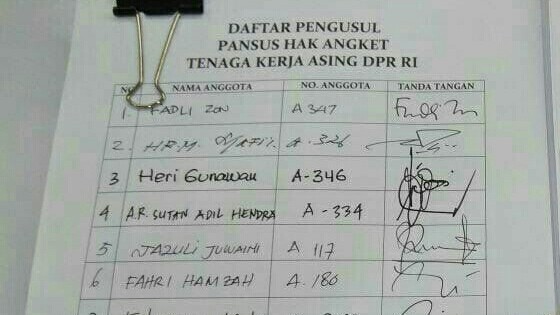 DAFTAR PENGUSUL
PANSUS HAK ANGKET
TENAGA KERJA ASING DPR RI
NAMA ANGGOTA NO. ANGGOTA TANDA TANGAN
1. FADLI ZON A 347
2. HR.M. SYAFII. A. 326
3 Heri Gunawan A-346
4 A.R. SUTAN ADIL HENDRA A - 334
5 JAZULI JUWAINI A 117
6 FAHRI HAMZAH A. 180